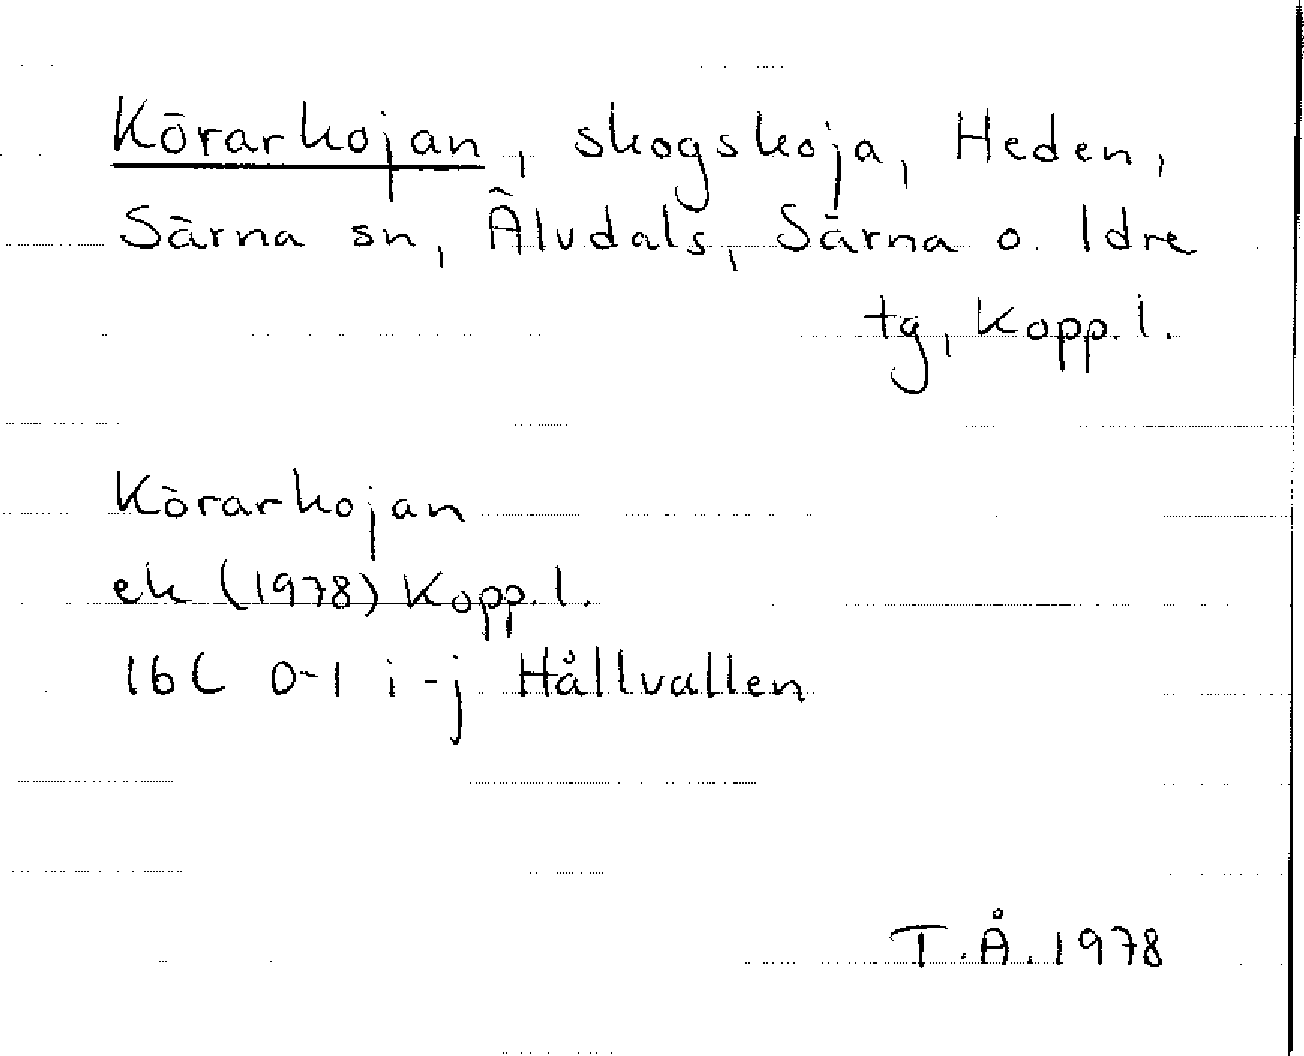 Körarkojan, skogskoja, Heden,
Särna sn, Älvdals, Särna o. Idre
tg, Kopp. l.
Körarkojan
ek (1978) Kopp. l.
16C 0-1 i-j Hållvallen
T.Å. 1978